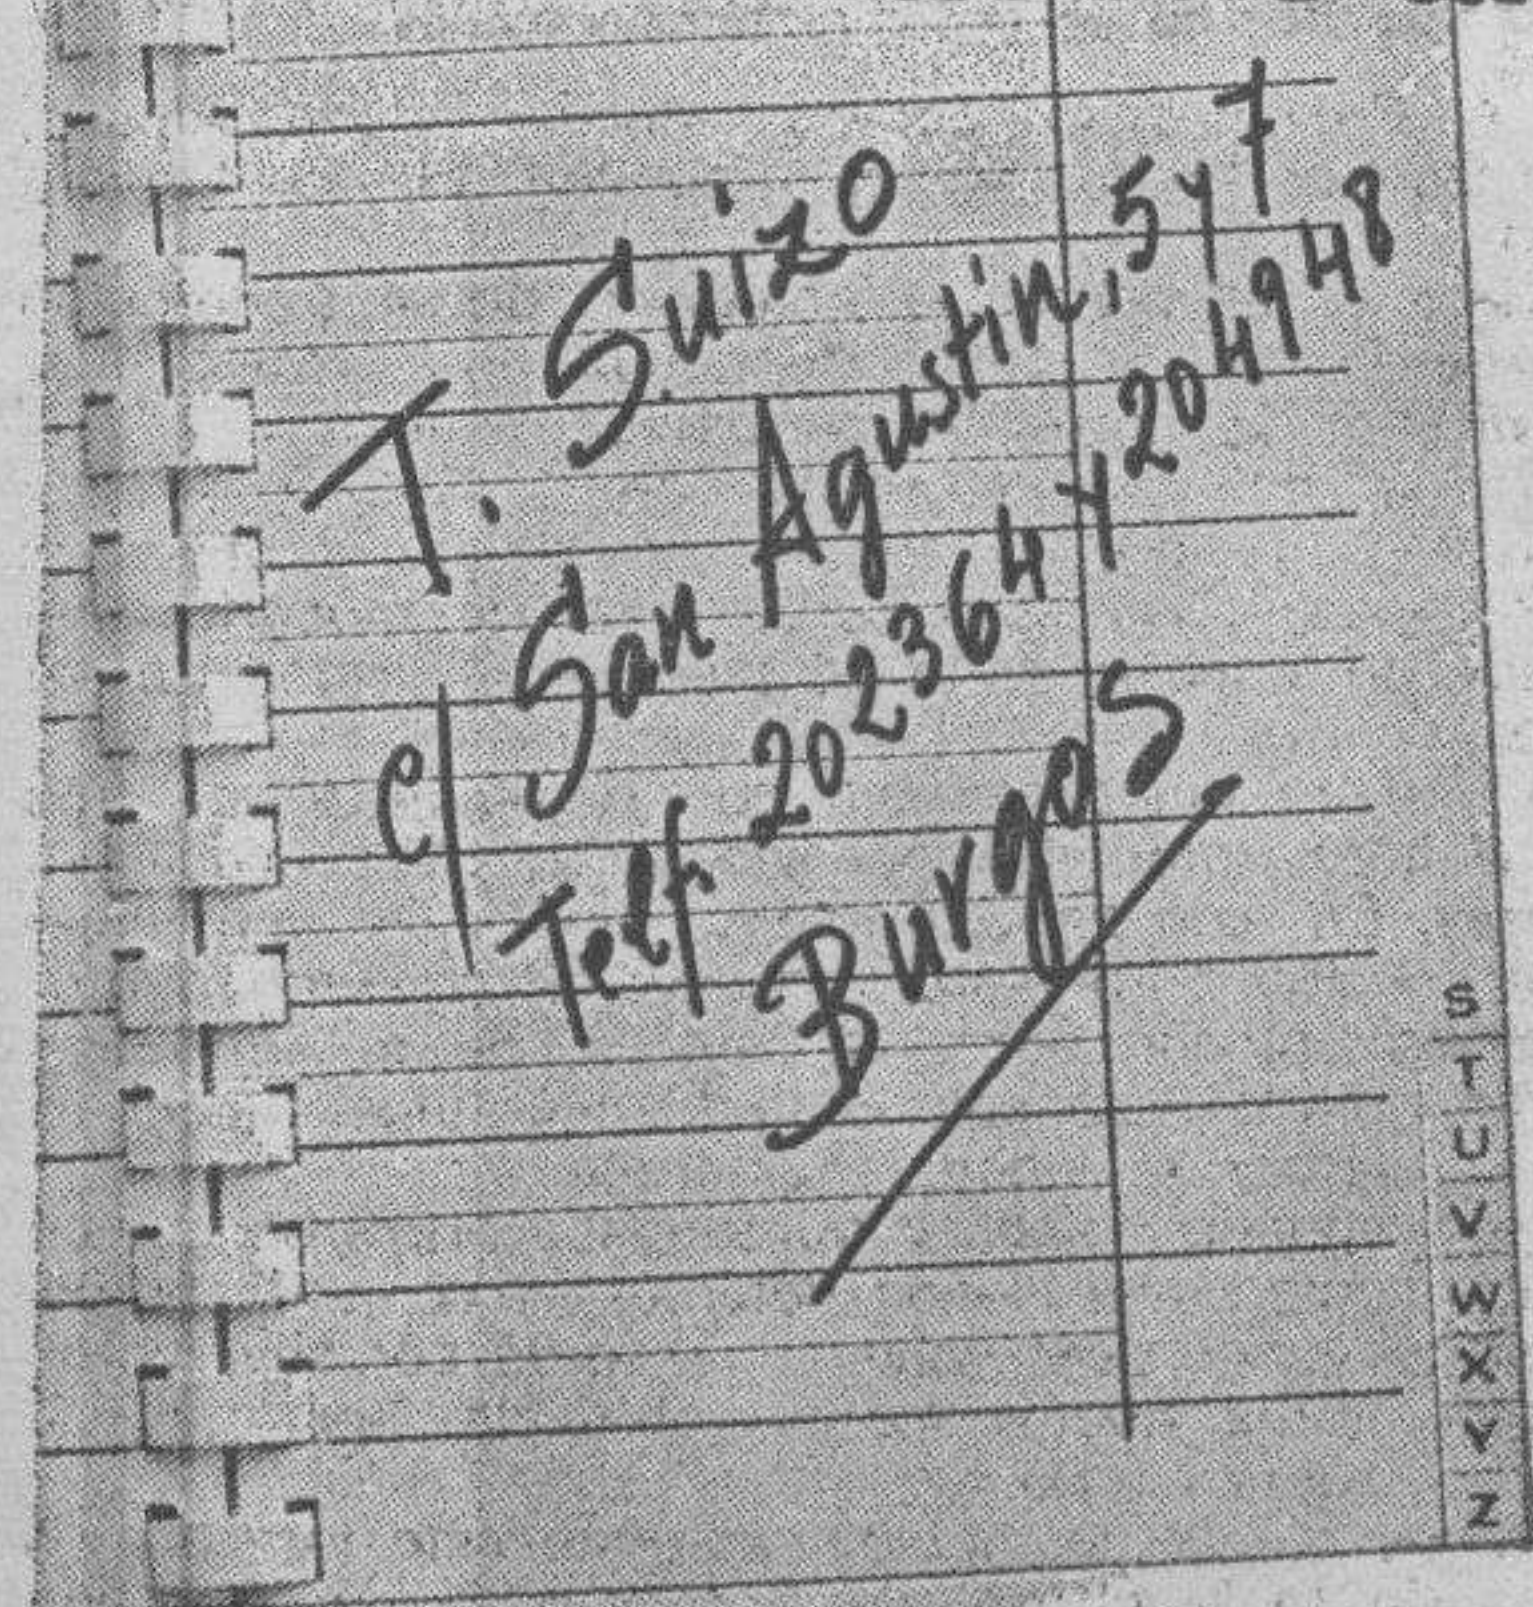 T. Suizo
C/ San Agustin, 5 y 7
Telf. 202364 y 204948
Burgos
S
T
U
V
W
X
Y
Z